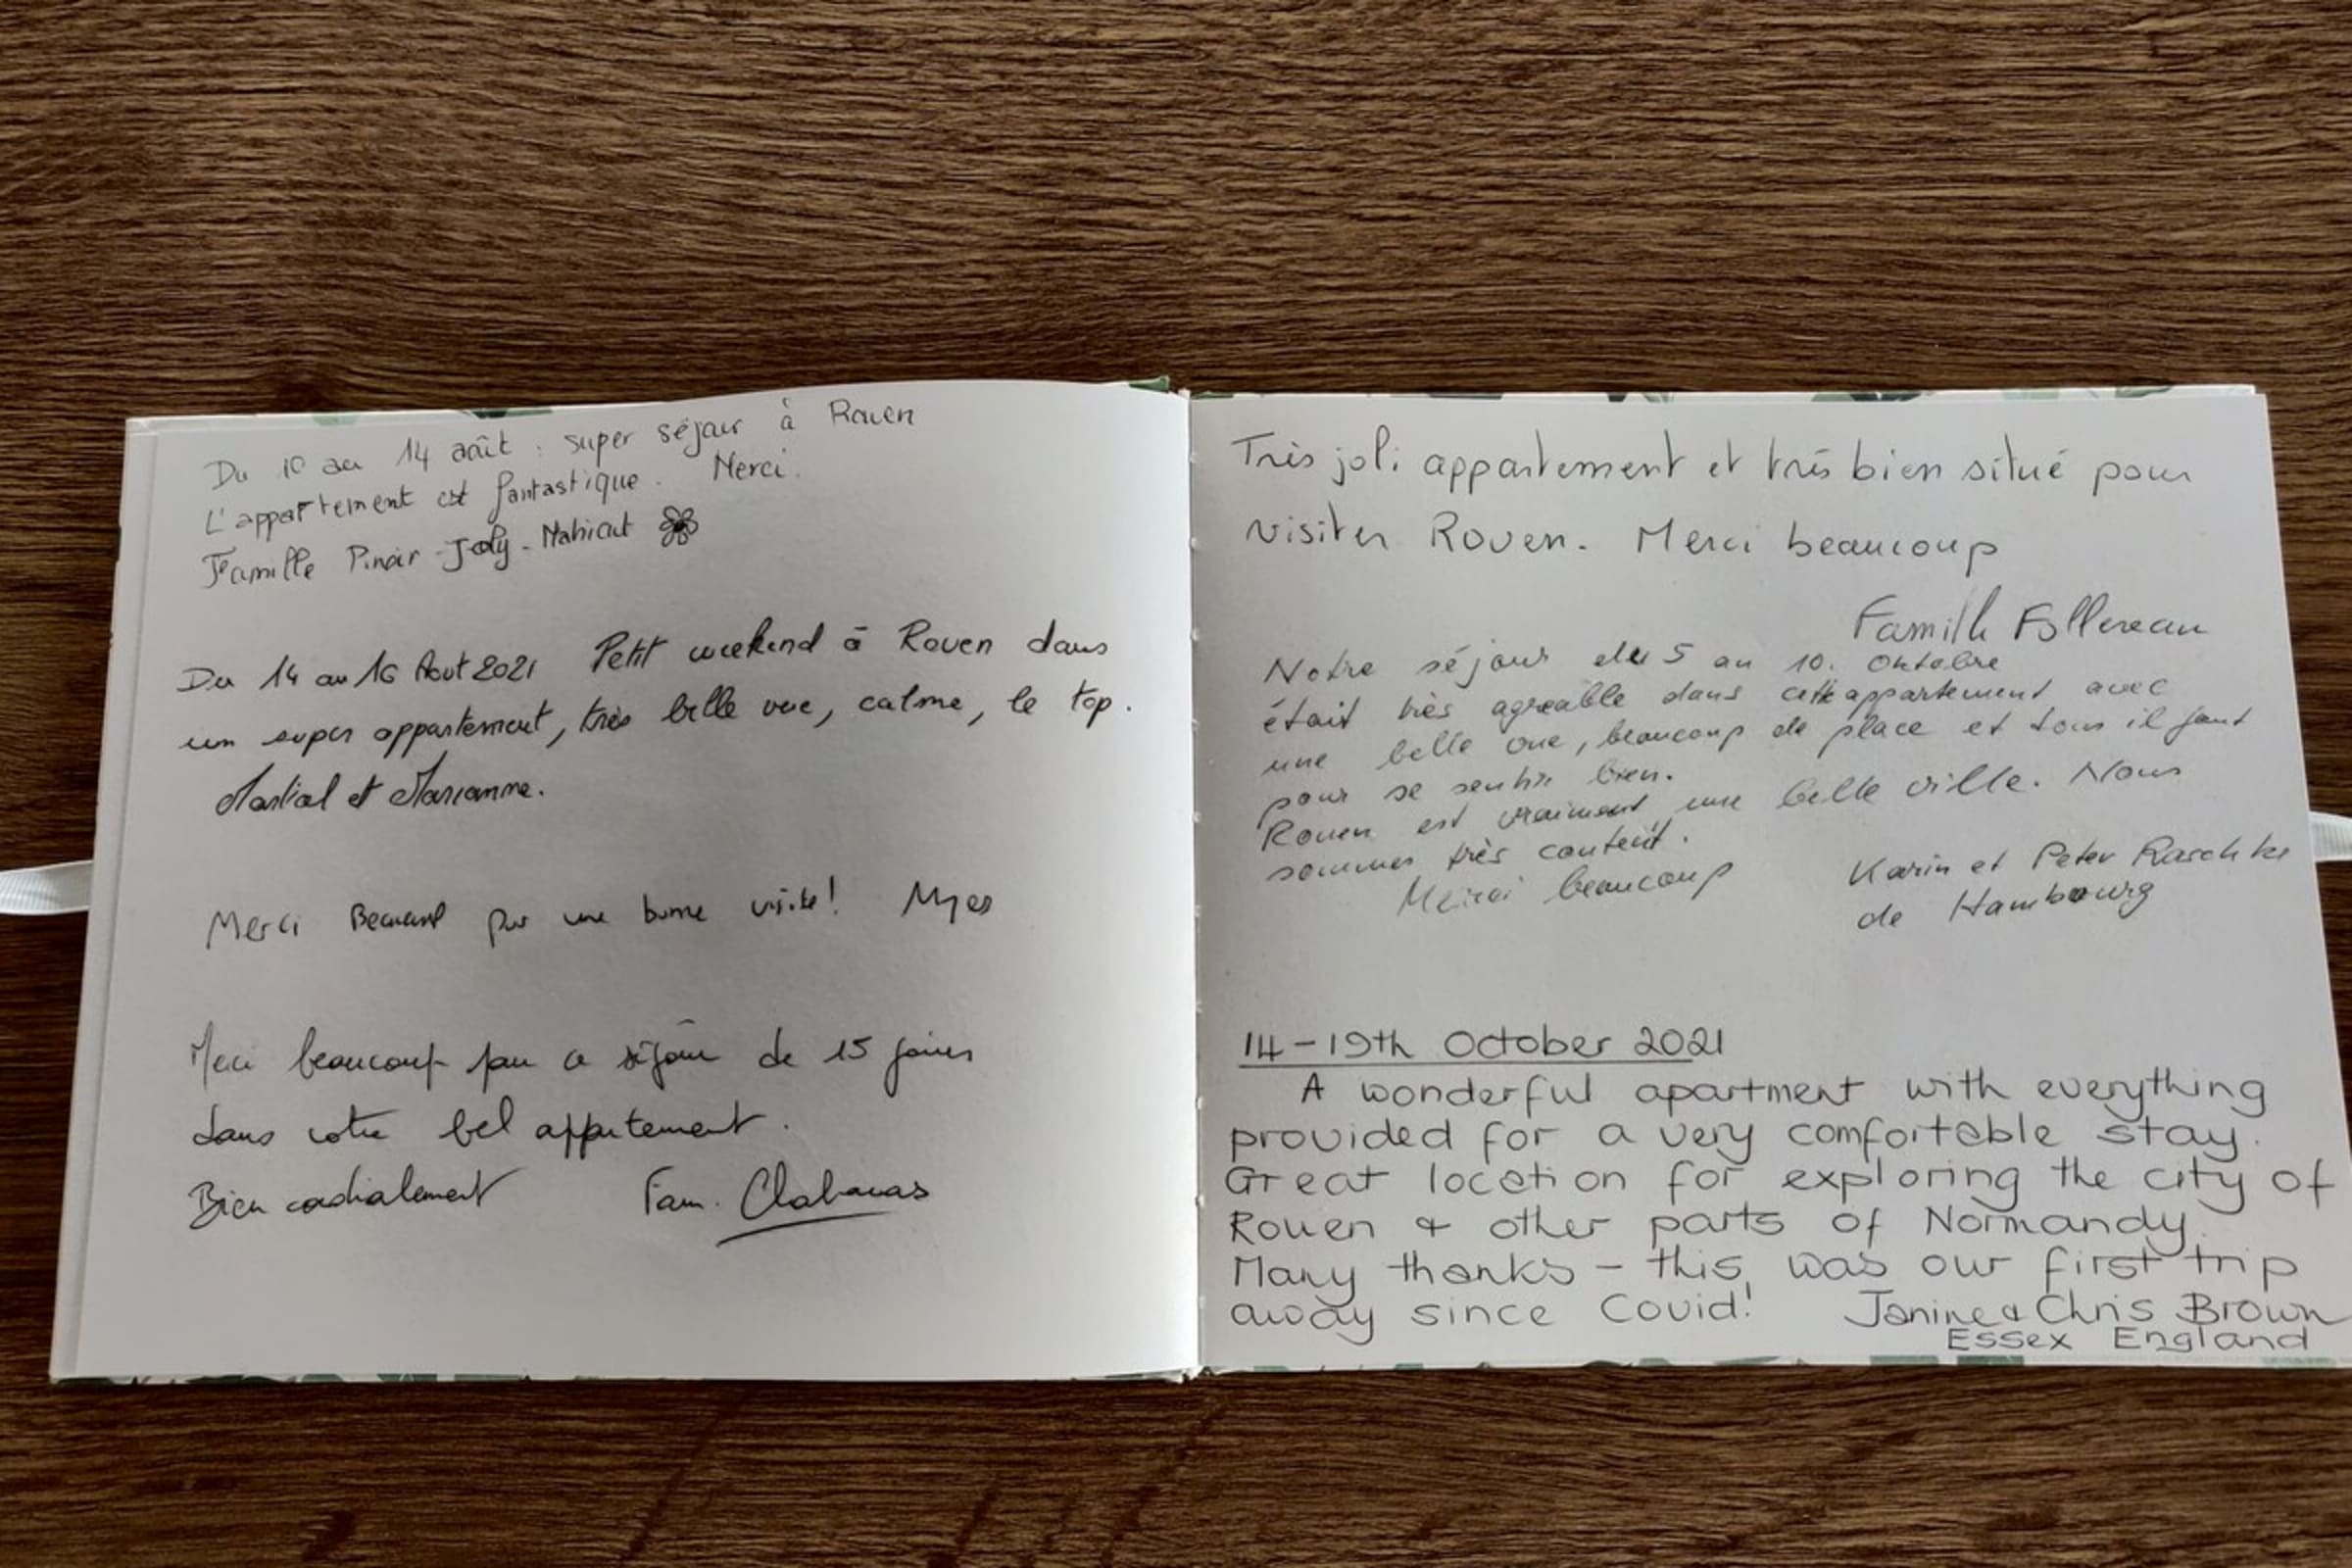 Du 10 au 14 août : super séjour à Rouen
L'appartement est fantastique. Merci.
Famille Pinar - Joly - Mahieut
Du 14 au 16 Aout 2021 Petit weekend à Rouen dans
un super appartement, très belle vue, calme, le top.
Martial et Marianne.
Merci pour une bonne visite!
Merci beaucoup pour ce séjour de 15 jours
dans votre bel appartement.
Bien cordialement Fam.
Très joli appartement et très bien situé pour
visiter Rouen. Merci beaucoup
Famille Follereau
Notre séjour du 5 au 10. Oktobre
était très agreable dans cette appartement avec
une belle vue, beaucoup de place et tous il faut
pour se sentir bien.
Rouen est vraiment une belle ville. Nous
sommes très content.
Merci beaucoup Karin et Peter Raschke
de Hambourg
14-19th October 2021
A wonderful apartment with everything
provided for a very comfortable stay.
Great location for exploring the city of
Rouen & other parts of Normandy.
Many thanks - this was our first trip
away since Covid! Janine & Chris Brown
Essex England